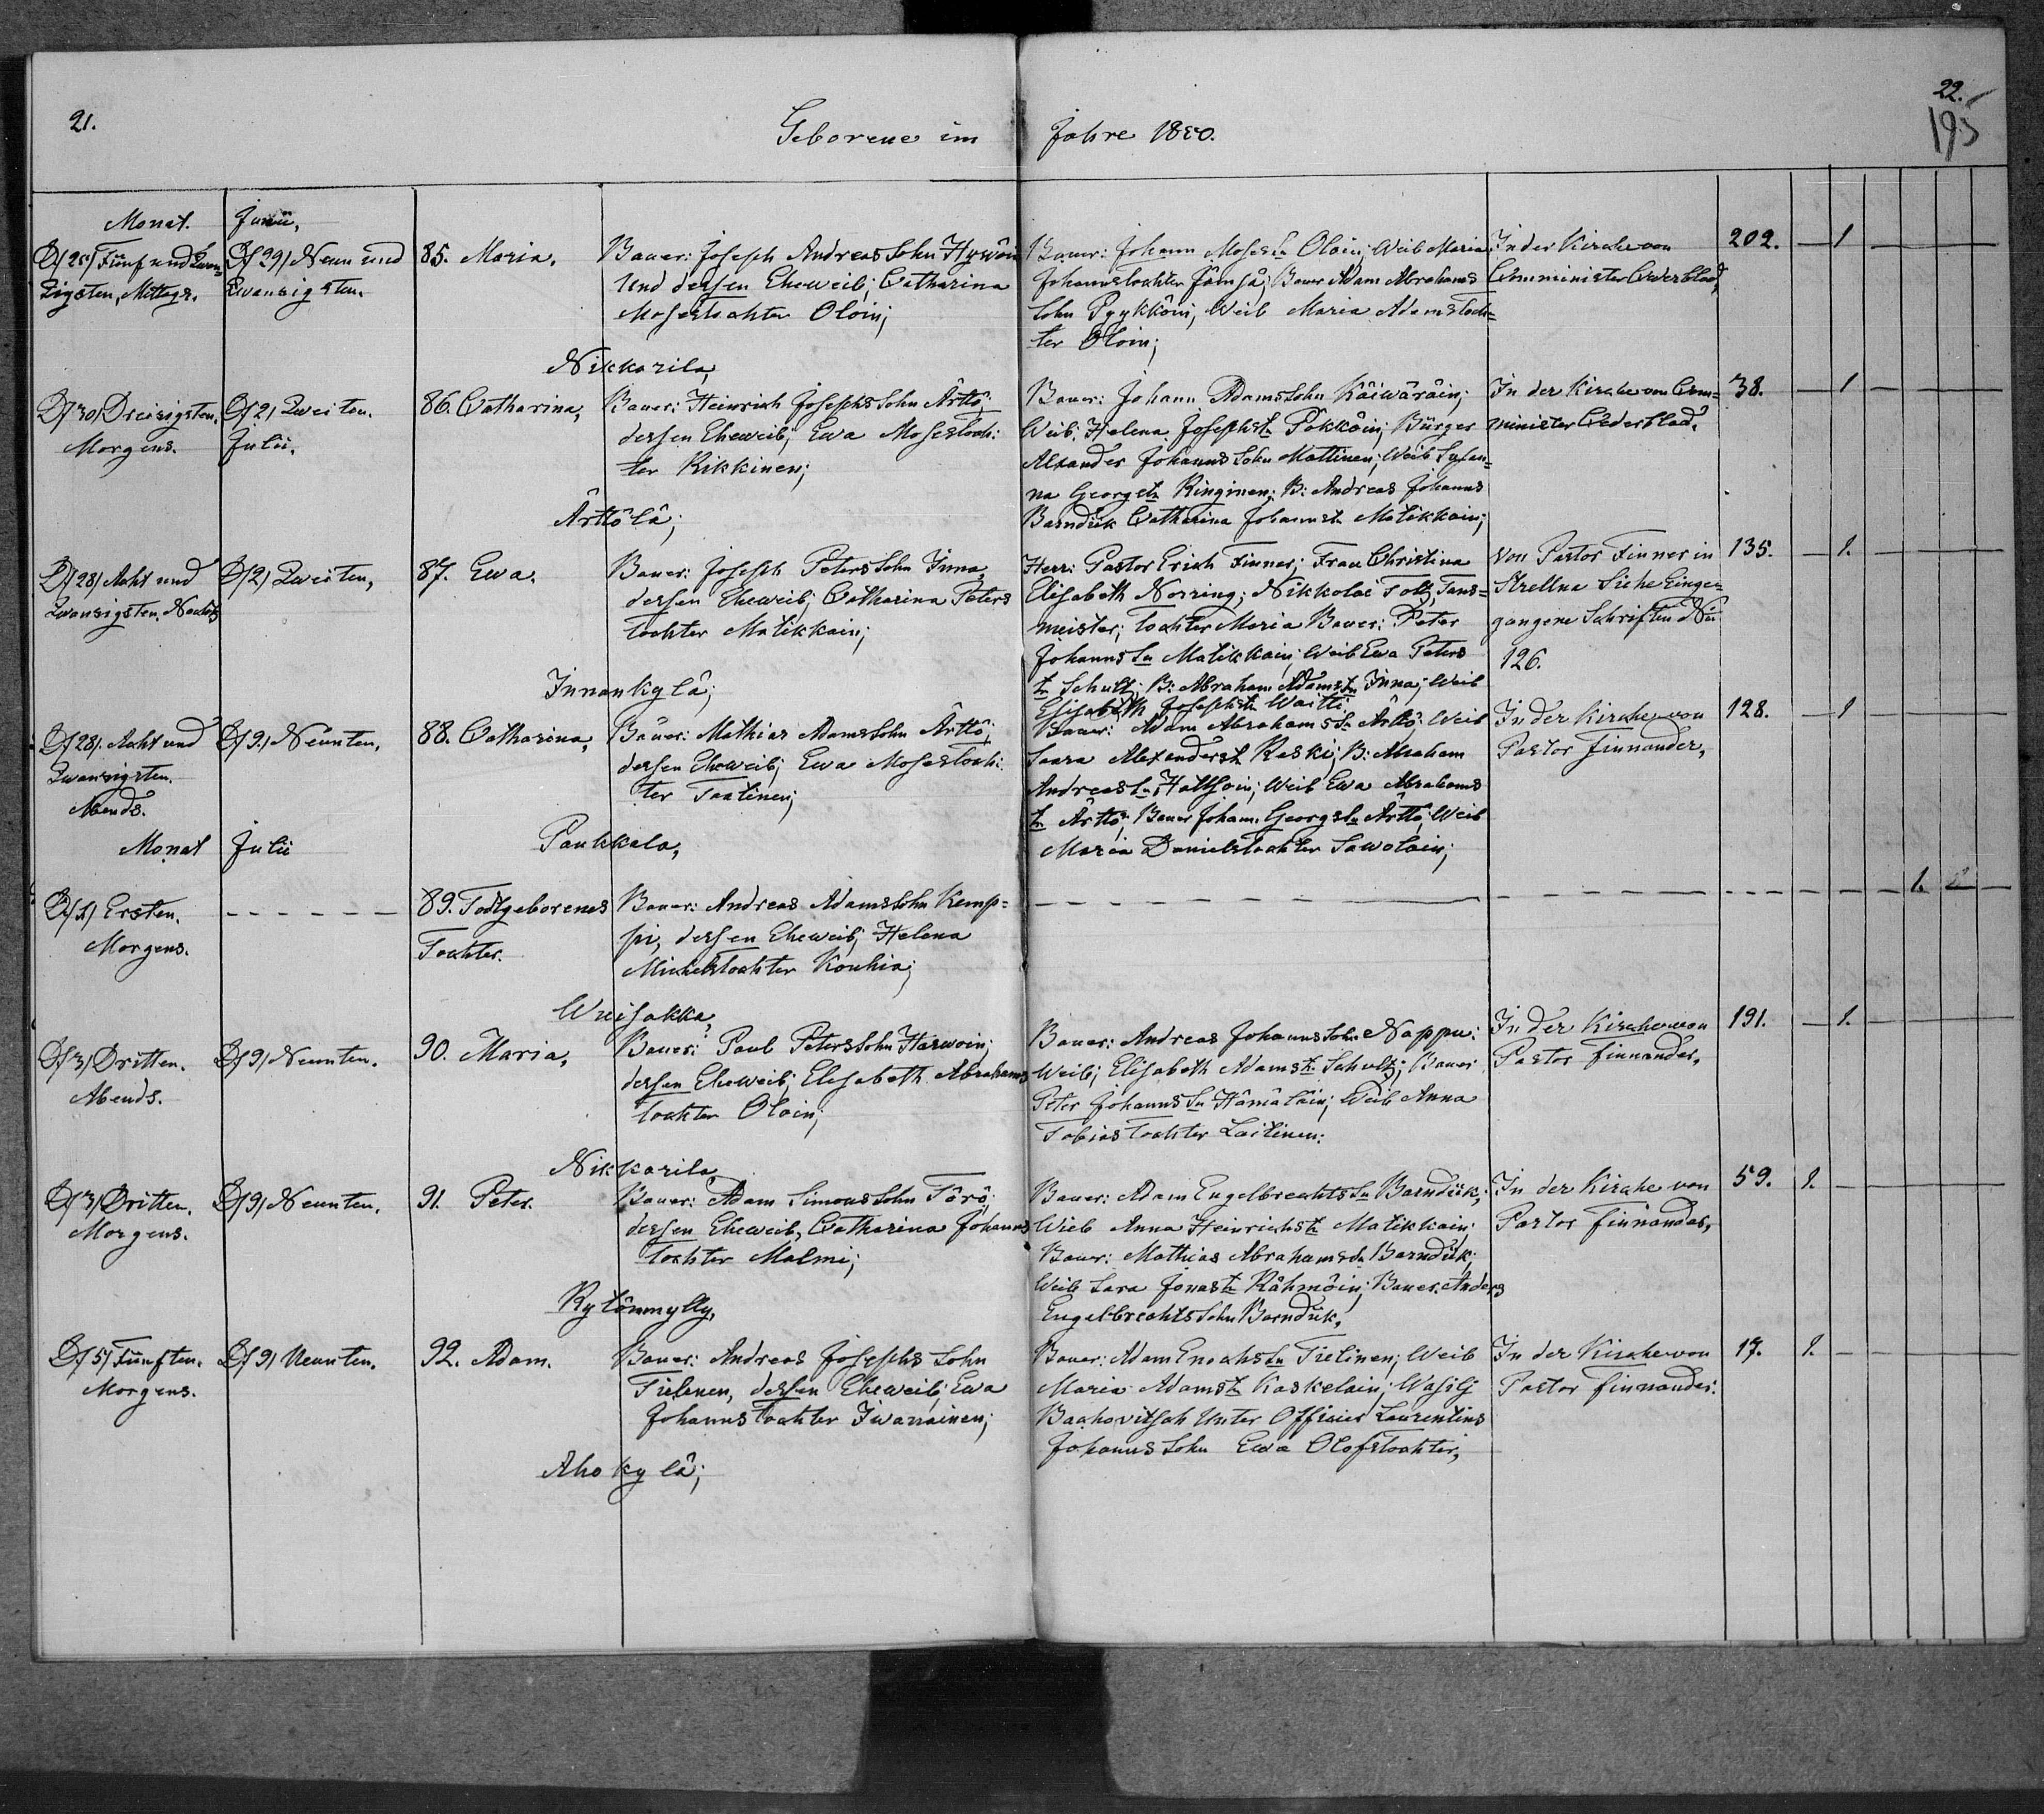 21.
22.
195
Geborene im Jahre 1850.
Monat. Junii,
D/25/ Fünf und Zwan=
zigsten, Mittags.
D/29/ Neun und
Zwanzigsten.
85. Maria.
Bauer: Joseph Andreas Sohn Hywöin
und dessen Eheweib; Catharina
Mosestochter Oloin;
Nikkarila,
Bauer: Johann Moses Sn Oloin; Weib Maria
Johannstochter Jämsä; Bauer Adam Abrahams
Sohn Pyykköin, Weib Maria Adamstoch=
ter Oloin;
In der Kirche von
Comminister
202. 1
D/30/ Dreisigsten.
Morgens.
D/2/ Zweiten.
Julii.
86. Catharina,
Bauer: Heinrich Josephs Sohn Ärttö;
dessen Eheweib; Ewa Mosestoch:
ter Kikkinen;
Ärttölä;
Bauer: Johann Adamssohn Käiwäräin;
Weib. Helena Josephst. Pökköin; Bürger
Alxander Johanns Sohn Mattinen; Weib Susan=
na Georgstr. Ringinen; B: Andreas Johanns
Barndük Catharina Johannstr. Matikkain;
In der Kirche von Com=
minister Cederblad.
38. 1
D/28/ Acht und
Zwanzigsten. Nachts
D/2/ Zweiten,
87. Ewa.
Bauer: Joseph Peters Sohn Inna,
dessen Eheweib; Catharina Peters
tochter Matikkain;
Innankylä;
Herr: Pastor Erich Finner; Frau Christina
Elisabeth Norring; Nikkolai Toltz, Tans=
meister; tochter Maria Bauer: Peter
Johanns Sn Matikkain; Weib Ewa Peters
tr Schultz; B: Abraham Adamssn Inna; Weib
Elisabeth Josephstr Waitti
Von Pastor Finner in
Strellna Siehe Einge=
gangene Schriften No
126.
135. 1.
D/28/. Acht und
Zwanzigsten.
Abends.
D/9./ Neunten,
88. Catharina,
Bauer: Mathias Adamssohn Ärttö;
dessen Eheweib; Ewa Mosestoch:
ter Taatinen;
Paukkala,
Bauer: Adam Abrahams Sn Ärttö; Weib
Saara Alexanderst Kaski; B: Abraham
Andreas Sn Hattoin; Weib Ewa Abrahams
tr Ärttö; Bauer Joham. Georgssn Ärttö; Weib
Maria Danielstochter Sawolain;
In der Kirche von
Pastor Finnander,
128. 1
Monat Julii
D/1/ Ersten.
Morgens.
89. Todtgeborenes
Tochter.
Bauer: Andreas Adamssohn Kemp=
pi, dessen Eheweib; Helena
Michelstochter Kouhia;
1.
D/3/ Dritten.
Abends.
D/9/ Neunten.
90. Maria,
Bauer: Paul Peterssohn Harwoin;
dessen Eheweib; Elisabeth Abrahams
tochter Oloin;
Nikkarila
Bauer: Andreas Johanns Sohn Nappu:
Weib; Elisabeth Adamstr. Schultz; Bauer
Peter Johanns Sn Hämäläin; Weib Anna
Tobiastochter Laitinen:
In der Kirche von
Pastor Finnander,
191. 1.
D/3/ Dritten.
Morgens.
D/9/ Neunten.
91. Peter.
Bauer: Adam Simons Sohn Törö;
dessen Eheweib, Catharina Johanns
tochter Malmi;
Kytönmylly,
Bauer: Adam Engelbrechts Sn Barndük;
Wieb Anna Heinrichstr Matikkain,
Bauer: Mathias Abrahamssn Barndük;
Weib Sara Jonastr Kähmöin; Bauer. Anders
Engelbrechts Sohn Barndük,
In der Kirche von
Pastor Finnander,
59. 1.
D/5/ Fünften.
Morgens.
D/9/ Neunten.
92. Adam.
Bauer: Andreas Josephs Sohn
Tielinen, dessen Eheweib; Ewa
Johannstochter Iwanainen;
Ahokylä;
Bauer: Adam Enochs Sn Tielinen; Weib
Maria Adamstr Kaskelain; Wasilj
Bachovitsch Unter Officier Laurentius
Johanns Sohn Ewa Olofstochter,
In der Kirche von
Pastor Finnander.
17. 1.